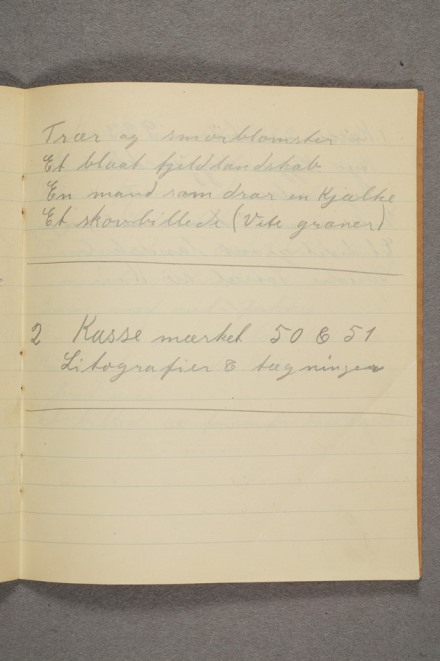 Trær og smørblomster
Et blaat fjeldlandskab
En mand som drar en Kjælke
Et skovbillede (Vite graner)
2 Kasse mærket 50 & 51
Litografier & tægninger